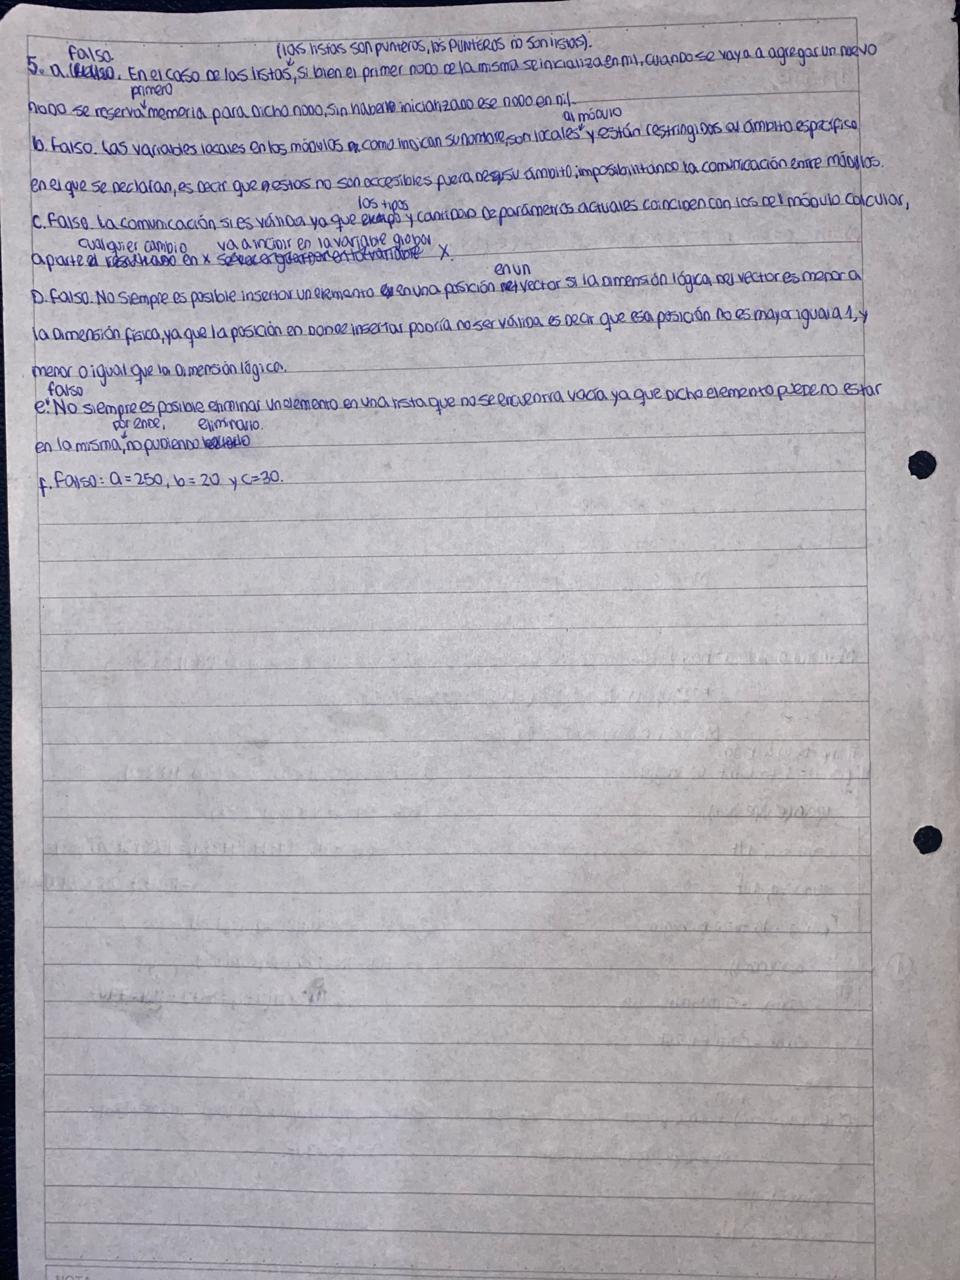 Falso (las listas son punteros, los PUNTEROS no son listas).
5. a. En el caso de las listas, si bien el primer nodo de la misma se inicializa en nil, cuando se vaya a agregar un nuevo
primero
nodo se reserva memoria para dicho nodo, sin haberle inicializado ese nodo en nil.
al módulo
b. Falso. Las variables locales en los módulos como indican su nombre, son locales y están restringidos al ámbito específico
en el que se declaran, es decir que estos no son accesibles fuera de su ámbito, imposibilitando la comunicación entre módulos.
los tipos
c. Falso. La comunicación si es válida ya que y cantidad de parámetros actuales coinciden con los del módulo calcular,
cualquier cambio va a incidir en la variable global
aparte en x x.
en un
D. Falso. No siempre es posible insertar un elemento en una posición vector si la dimensión lógica del vector es menor a
la dimensión física, ya que la posición en donde insertar podría no ser válida es decir que esa posición no es mayor igual a 1, y
menor o igual que la dimensión lógica.
falso
e. No siempre es posible eliminar un elemento en una lista que no se encuentra vacía ya que dicho elemento puede no estar
por ende, eliminarlo.
en la misma, no pudiendo
f. Falso: a=250, b=20 y c=30.
NOTA